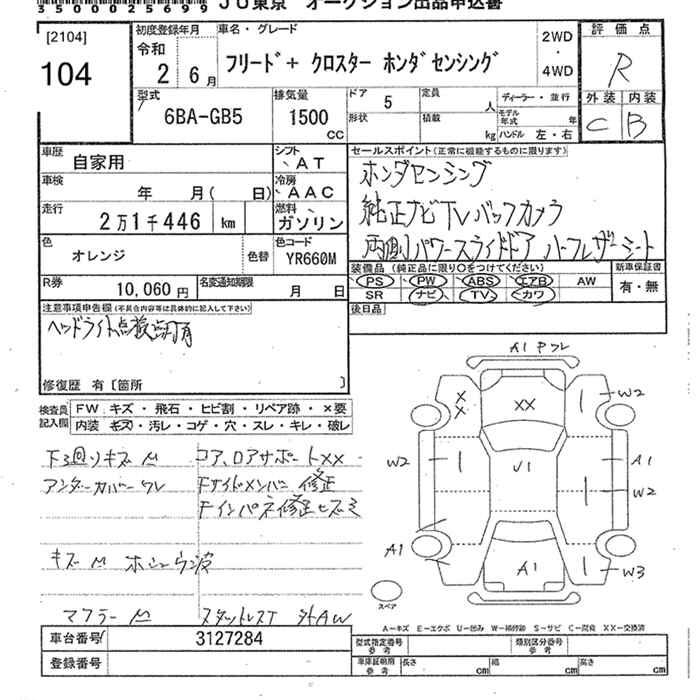 35000025699 JU東京 オークション出品申込書
[2104]
104
初度登録年月
令和
2 6月
車名・グレード
フリード+ クロスター ホンダセンシング
2WD
・
4WD
評価点
R
外装 内装
C B
型式
6BA-GB5
排気量
1500
CC
ドア 5
形状
定員 人
積載 kg
ディーラー・並行
モデル年式 年
ハンドル 左・右
車歴
自家用
シフト
AT
車検
年 月( 日)
冷房
AAC
走行
2万1千446 km
燃料
ガソリン
色
オレンジ
色替
色コード
YR660M
R券
10,060円
名変通知期限
月 日
セールスポイント(正常に機能するものに限ります)
ホンダセンシング
純正ナビTVバックカメラ
両側パワースライドドア ハーフレザーシート
装備品(純正品に限り○をつけてください)
PS PW ABS エアB AW
SR ナビ TV カワ
新車保証書
有・無
後日品
注意事項申告欄(不具合内容等は具体的に記入して下さい)
ヘッドライト点検
修復歴 有〔箇所 〕
検査員記入欄
FW キズ・飛石・ヒビ割・リペア跡・×要
内装 キズ・汚レ・コゲ・穴・スレ・キレ・破レ
コア、ロアサポートXX
アンダーカバーワレ
Fサイドメンバー修正
Fインパネ修正ヒズミ
キズM
マフラーM
スタットレスT 外AW
A1 Fワレ
X
X
XX
W2
W2
U1
A1
W2
A1
A1
W3
スペア
A-キズ E-エクボ U-凹み W-補修跡 S-サビ C-腐食 XX-交換済
車台番号
3127284
登録番号
型式指定番号
参考
類別区分番号
参考
車庫証明用
参考
長さ cm
幅 cm
高さ cm